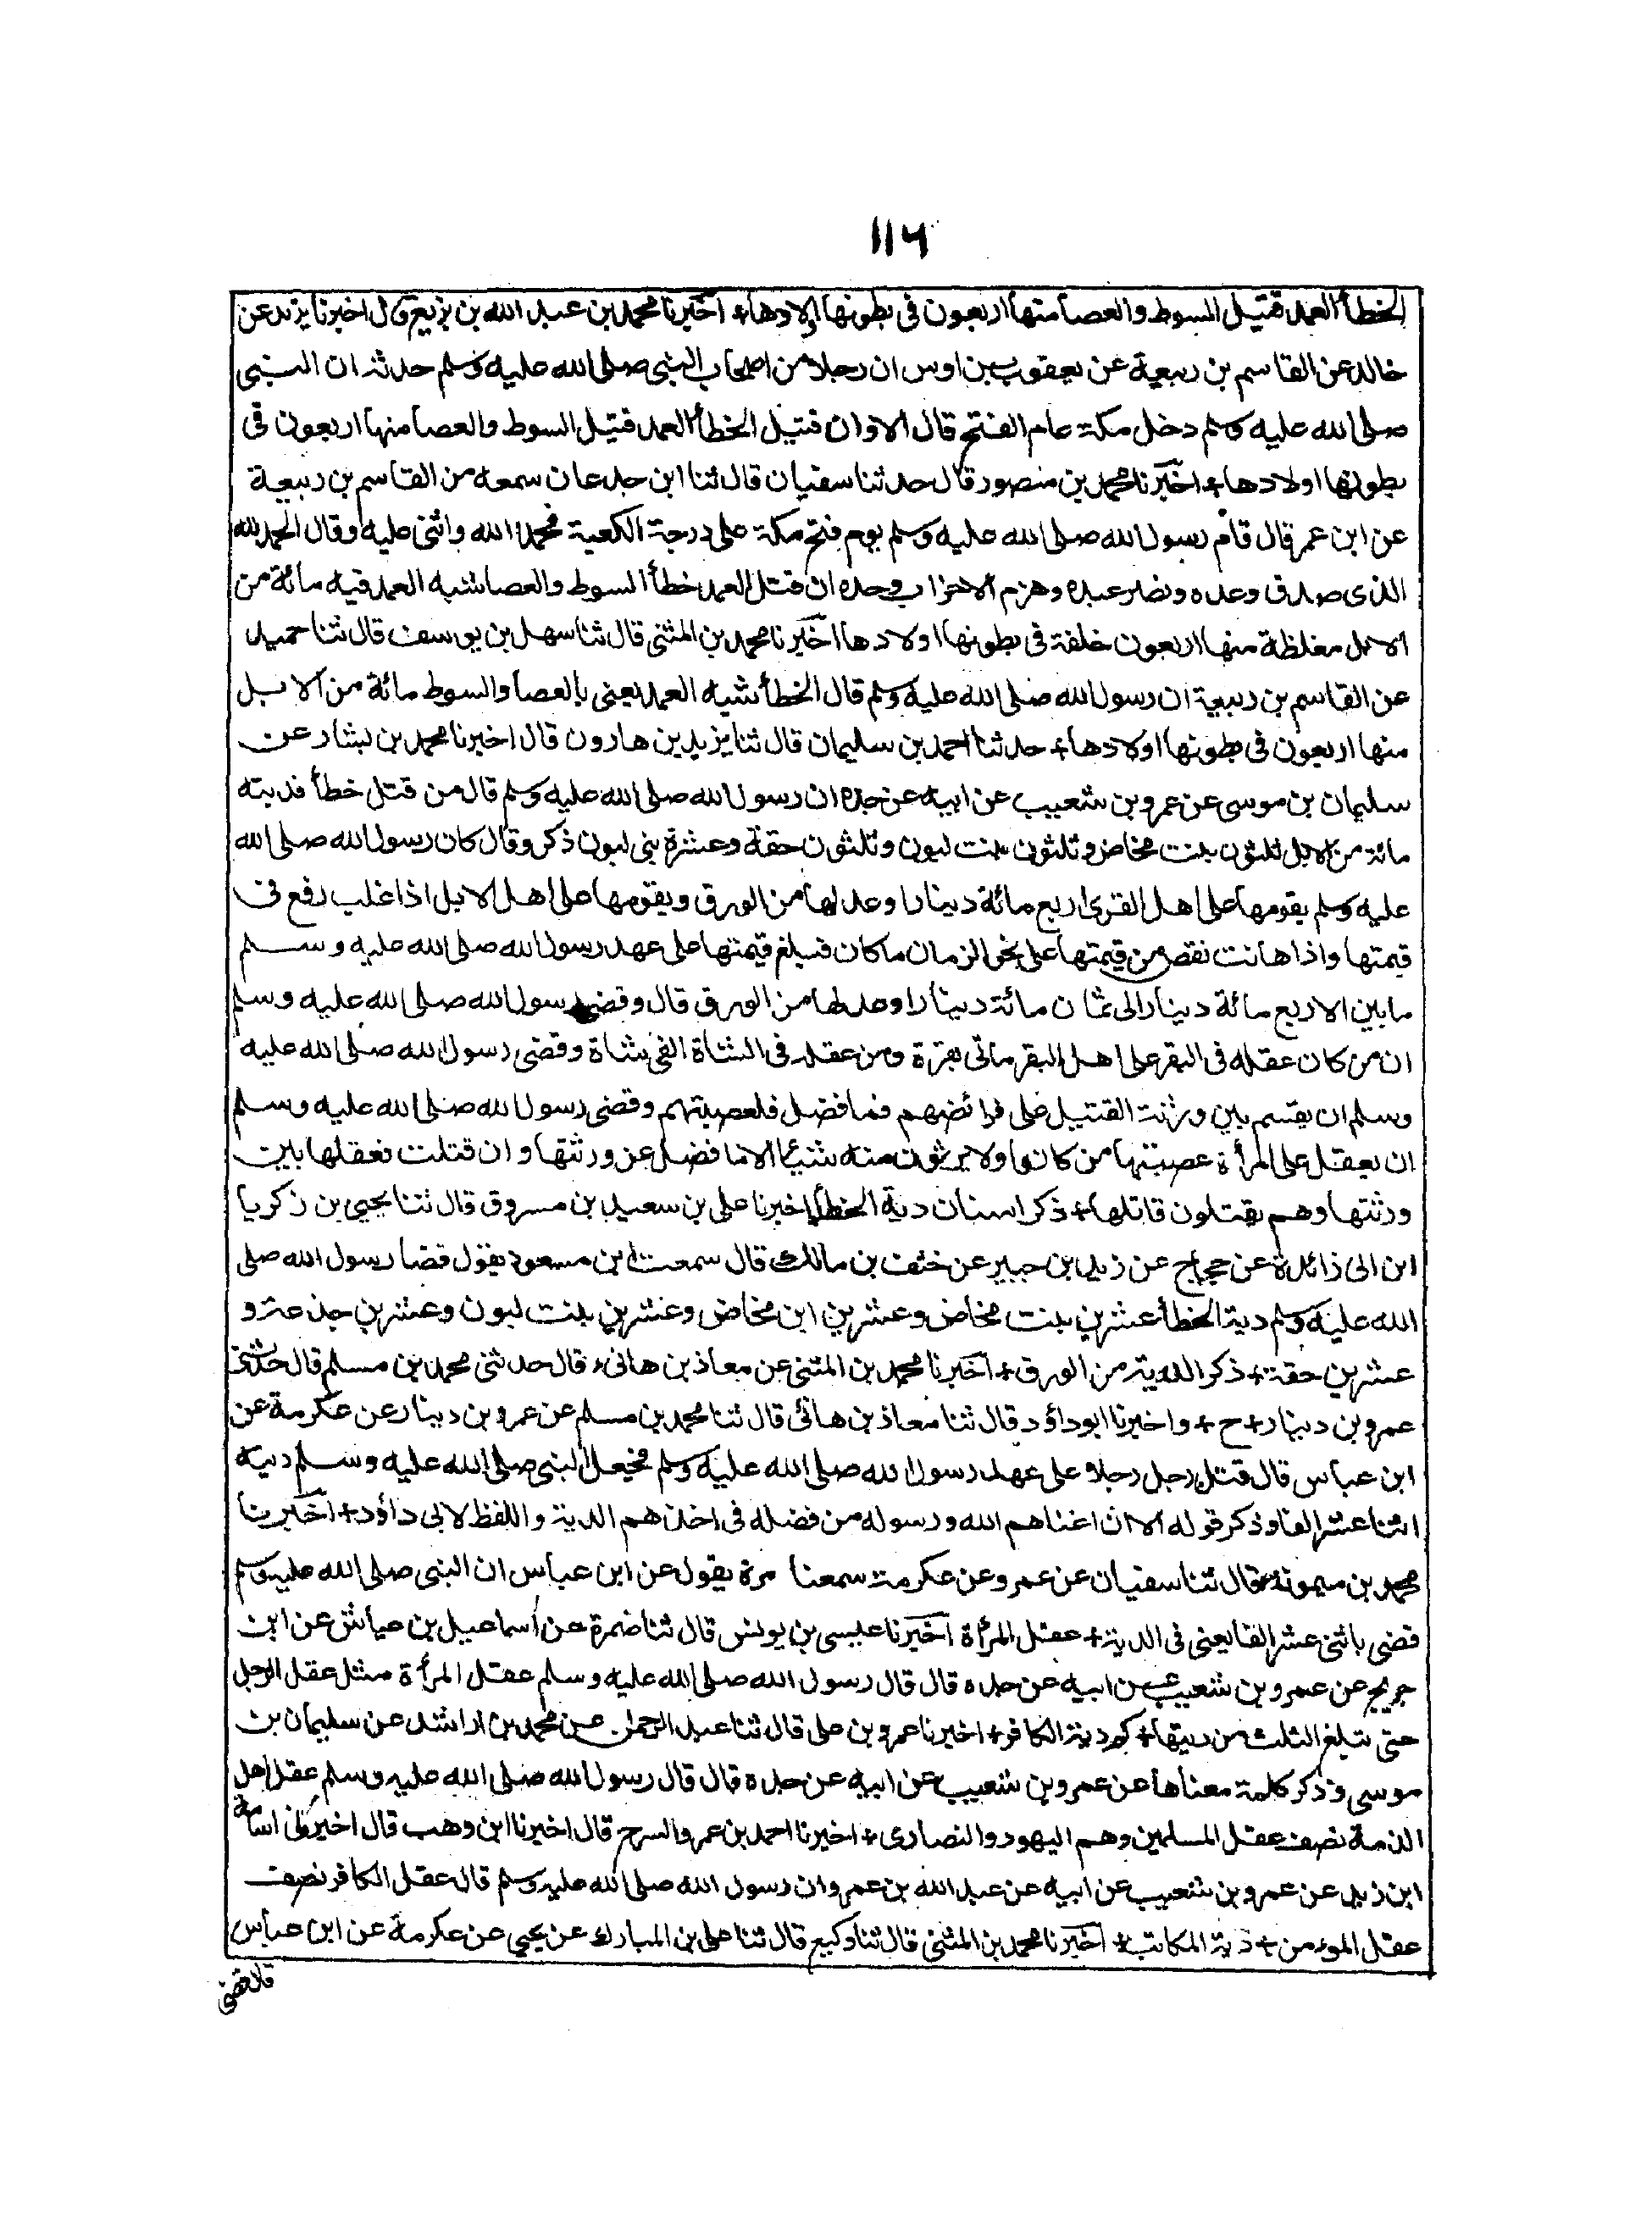 ۱۱۶
الخطأ العمد قتيل السوط والعصا منها اربعون فى بطونها اولادها+ اخبرنا محمد بن عبد الله بن بزيع قال اخبرنا يزيد عن
خالد عن القاسم بن ربيعة عن يعقوب بن اوس ان رجلا من اصحاب النبى صلى الله عليه وسلم حدثه ان النبى
صلى الله عليه وسلم دخل مكة عام الفتح قال الا وان قتيل الخطأ العمد قتيل السوط والعصا منها اربعون فى
بطونها اولادها+ اخبرنا محمد بن منصور قال حدثنا سفيان قال ثنا ابن جدعان سمعه من القاسم بن ربيعة
عن ابن عمر قال قام رسول الله صلى الله عليه وسلم يوم فتح مكة على درجة الكعبة فحمد الله واثنى عليه وقال الحمد لله
الذى صدق وعده ونصر عبده وهزم الاحزاب وحده ان قتل العمد خطأ السوط والعصا شبه العمد فيه مائة من
الابل مغلظة منها اربعون خلفة فى بطونها اولادها اخبرنا محمد بن المثنى قال ثنا سهل بن يوسف قال ثنا حميد
عن القاسم بن ربيعة ان رسول الله صلى الله عليه وسلم قال الخطأ شبه العمد يعنى بالعصا والسوط مائة من الابل
منها اربعون فى بطونها اولادها+ حدثنا احمد بن سليمان قال ثنا يزيد بن هارون قال اخبرنا محمد بن بشار عن
سليمان بن موسى عن عمرو بن شعيب عن ابيه عن جده ان رسول الله صلى الله عليه وسلم قال من قتل خطأ فديته
مائة من الابل ثلثون بنت مخاض وثلثون بنت لبون وثلثون حقة وعشرة بنى لبون ذكر وقال كان رسول الله صلى الله
عليه وسلم يقومها على اهل القرى اربع مائة دينارا وعدلها من الورق ويقومها على اهل الابل اذا غلب رفع فى
قيمتها واذا هانت نقص من قيمتها على نحو الزمان ما كان فبلغ قيمتها على عهد رسول الله صلى الله عليه وسلم
ما بين الاربع مائة دينار الى ثمان مائة دينارا وعدلها من الورق قال وقضى رسول الله صلى الله عليه وسلم
ان من كان عقله فى البقر على اهل البقر مأتى بقرة ومن عقله فى الشاة الفى شاة وقضى رسول الله صلى الله عليه
وسلم ان يقسم بين ورثة القتيل على فرائضهم فما فضل فلعصبتهم وقضى رسول الله صلى الله عليه وسلم
ان يعقل على المرأة عصبتها من كانوا ولا يرثون منه شيئا الا ما فضل عن ورثتها وان قتلت فعقلها بين
ورثتها وهم يقتلون قاتلها+ ذكر اسنان دية الخطأ اخبرنا على بن سعيد بن مسروق قال ثنا يحيى بن زكريا
ابن ابى زائدة عن حجاج عن زيد بن جبير عن خشف بن مالك قال سمعت ابن مسعود يقول قضا رسول الله صلى
الله عليه وسلم دية الخطأ عشرين بنت مخاض وعشرين ابن مخاض وعشرين بنت لبون وعشرين جذعة و
عشرين حقة+ ذكر الدية من الورق+ اخبرنا محمد بن المثنى عن معاذ بن هانىء قال حدثنى محمد بن مسلم قال حدثنى
عمرو بن دينار+ ح + واخبرنا ابو داؤد قال ثنا معاذ بن هانى قال ثنا محمد بن مسلم عن عمرو بن دينار عن عكرمة عن
ابن عباس قال قتل رجل رجلا على عهد رسول الله صلى الله عليه وسلم فجعل النبى صلى الله عليه وسلم ديته
اثنا عشر الفا وذكر قوله الا ان اغناهم الله ورسوله من فضله فى اخذهم الدية واللفظ لابى داؤد+ اخبرنا
محمد بن ميمونة قال ثنا سفيان عن عمرو عن عكرمة سمعنا مرة يقول عن ابن عباس ان النبى صلى الله عليه وسلم
قضى باثنى عشر الفا يعنى فى الدية+ عقل المرأة اخبرنا عيسى بن يونس قال ثنا ضمرة عن اسماعيل بن عياش عن ابن
جريج عن عمرو بن شعيب عن ابيه عن جده قال قال رسول الله صلى الله عليه وسلم عقل المرأة مثل عقل الرجل
حتى تبلغ الثلث من ديتها+ كم دية الكافر+ اخبرنا عمرو بن على قال ثنا عبد الرحمن عن محمد بن اراشد عن سليمان بن
موسى وذكر كلمة معناها عن عمرو بن شعيب عن ابيه عن جده قال قال رسول الله صلى الله عليه وسلم عقل اهل
الذمة نصف عقل المسلمين وهم اليهود والنصارى+ اخبرنا احمد بن عمرو السرح قال اخبرنا ابن وهب قال اخبرنى اسامة
ابن زيد عن عمرو بن شعيب عن ابيه عن عبد الله بن عمرو ان رسول الله صلى الله عليه وسلم قال عقل الكافر نصف
عقل الموءمن+ دية المكاتب+ اخبرنا محمد بن المثنى قال ثنا وكيع قال ثنا على بن المبارك عن يحيى عن عكرمة عن ابن عباس
قال قضى